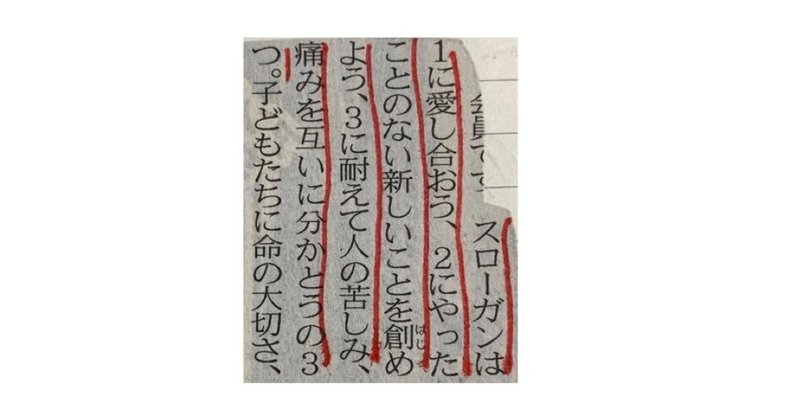 会員です　スローガンは
1に愛し合おう、2にやった
ことのない新しいことを創め
はじ
よう、3に耐えて人の苦しみ、
痛みを互いに分かとうの3
つ。子どもたちに命の大切さ、